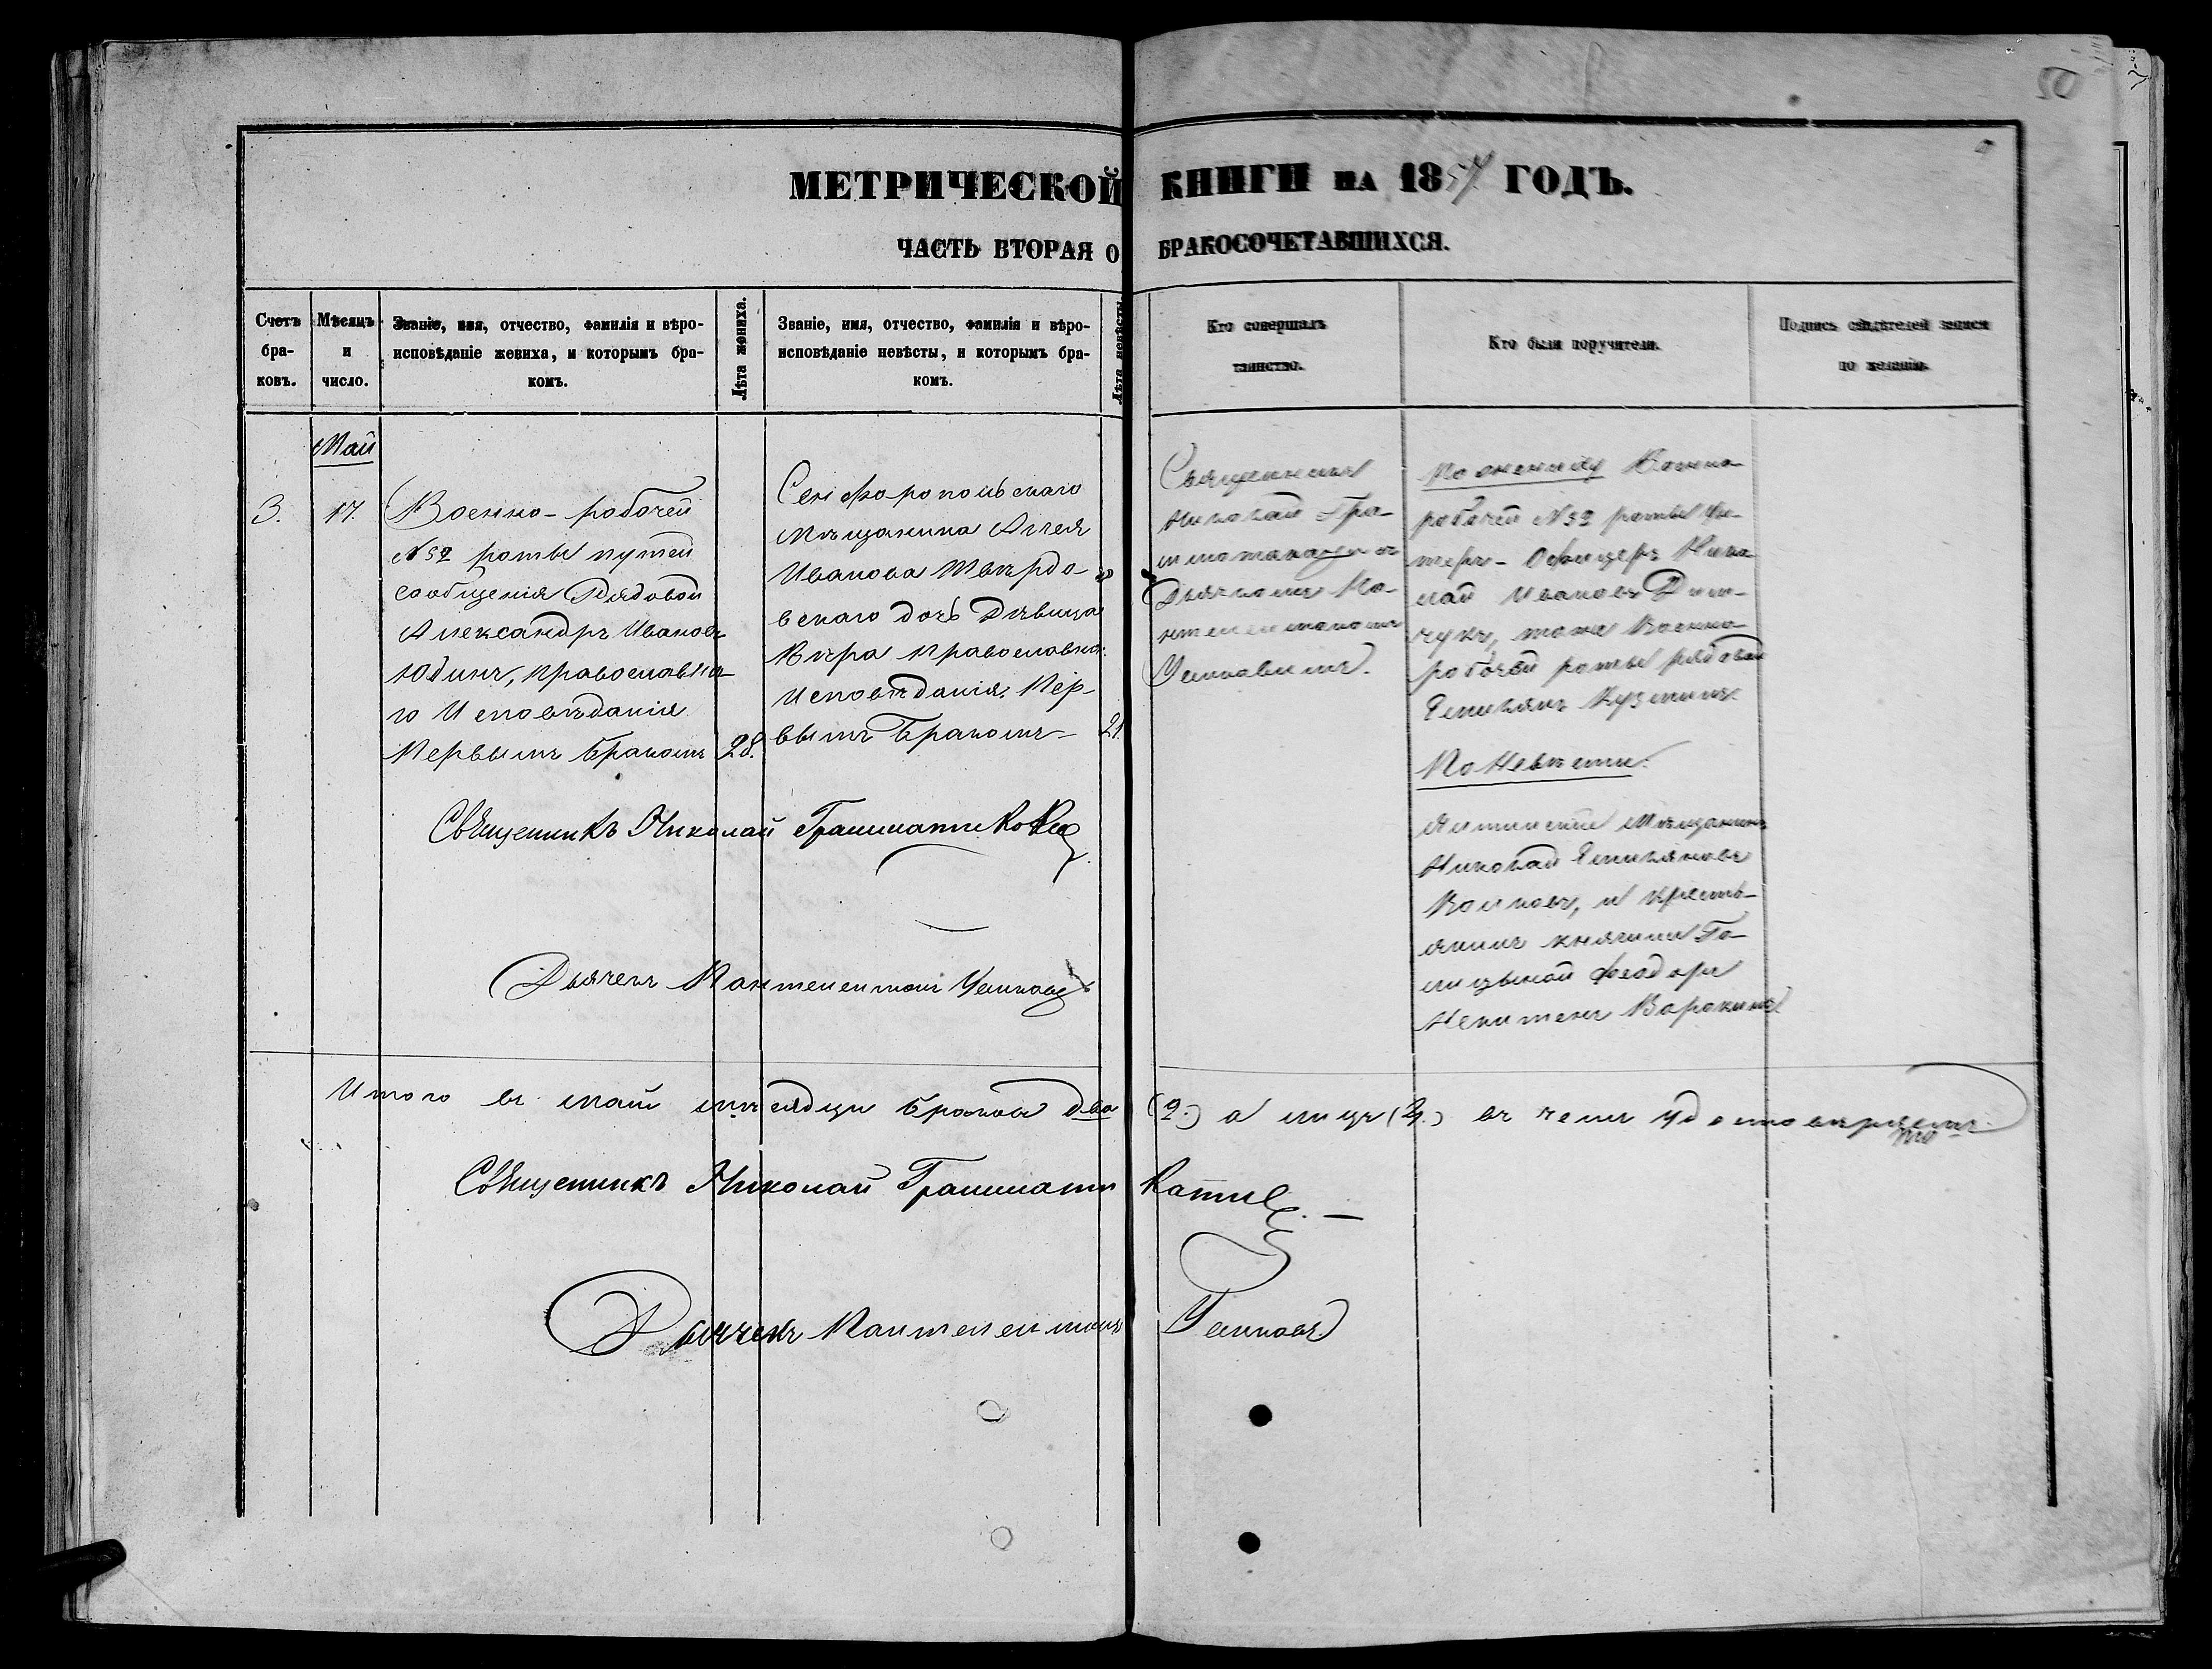 50
МЕТРИЧЕСКОЙ КНИГИ НА 1857 ГОДЪ.
ЧАСТЬ ВТОРАЯ О БРАКОСОЧЕТАВШИХСЯ.
Счетъ
бра-
ковъ.
Мѣсяцъ
и
число.
Званіе, имя, отчество, фамилія и вѣро-
исповѣданіе жениха, и которымъ бра-
комъ.
Лѣта жениха.
Званіе, имя, отчество, фамилія и вѣро-
исповѣданіе невѣсты, и которымъ бра-
комъ.
Лѣта невѣсты
Кто совершалъ
таинство.
Кто были поручители.
Подпись свидѣтелей записи
по желанію.
Май
3.
17.
Военно-рабочей
№ 32 роты путей
сообщенія Рядовой
Александръ Ивановъ
Юдинъ, православна-
го Исповѣданія
Первымъ бракомъ
28.
Симферопольскаго
Мѣщанина
Иванова Твердо-
вскаго дочь Дѣвица
Вѣра православна.
Исповѣданія, Пер-
вымъ бракомъ
21.
Священникъ
Николай Гра-
мматикати съ
Дьячкомъ Па-
нтелеимономъ
Ушковымъ.
По жениху Военно-
рабочей № 32 роты Ун-
теръ-Офицеръ Нико-
лай Ивановъ
тоже Военно-
рабочей роты рядовой
Емильянъ Кузминъ.
По Невѣсти.
Ялтинскій Мѣщанинъ
Николай Емильяновъ
Волковъ, и кресть-
янинъ княгини Го-
лицыной Феодоръ
Никитенъ Воронинъ
Священникъ Николай Грамматикати
Дьячекъ Пантелеимонъ Ушковъ
Итого въ май мѣсяци браковъ два (2.) а лицъ (4.) въ чемъ удостовѣряемъ
Священникъ Николай Грамматикати.
Дьячекъ Пантелеимонъ Ушковъ